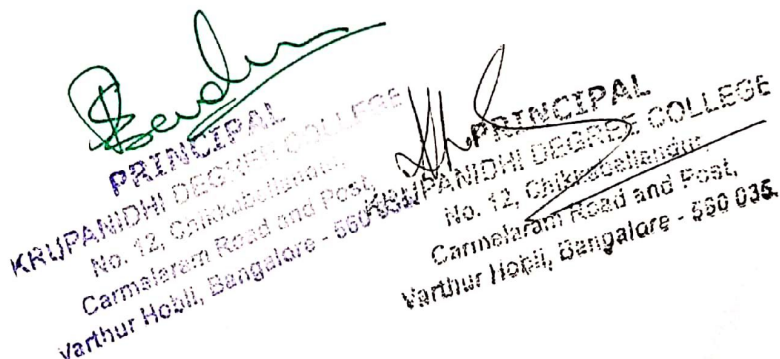 PRINCIPAL
KRUPANIDHI DEGREE COLLEGE
No. 12, Chikkabellandur,
Carmelaram Road and Post,
Varthur Hobli, Bangalore - 560 035.
PRINCIPAL
KRUPANIDHI DEGREE COLLEGE
No. 12, Chikkabellandur,
Carmelaram Road and Post,
Varthur Hobli, Bangalore - 560 035.